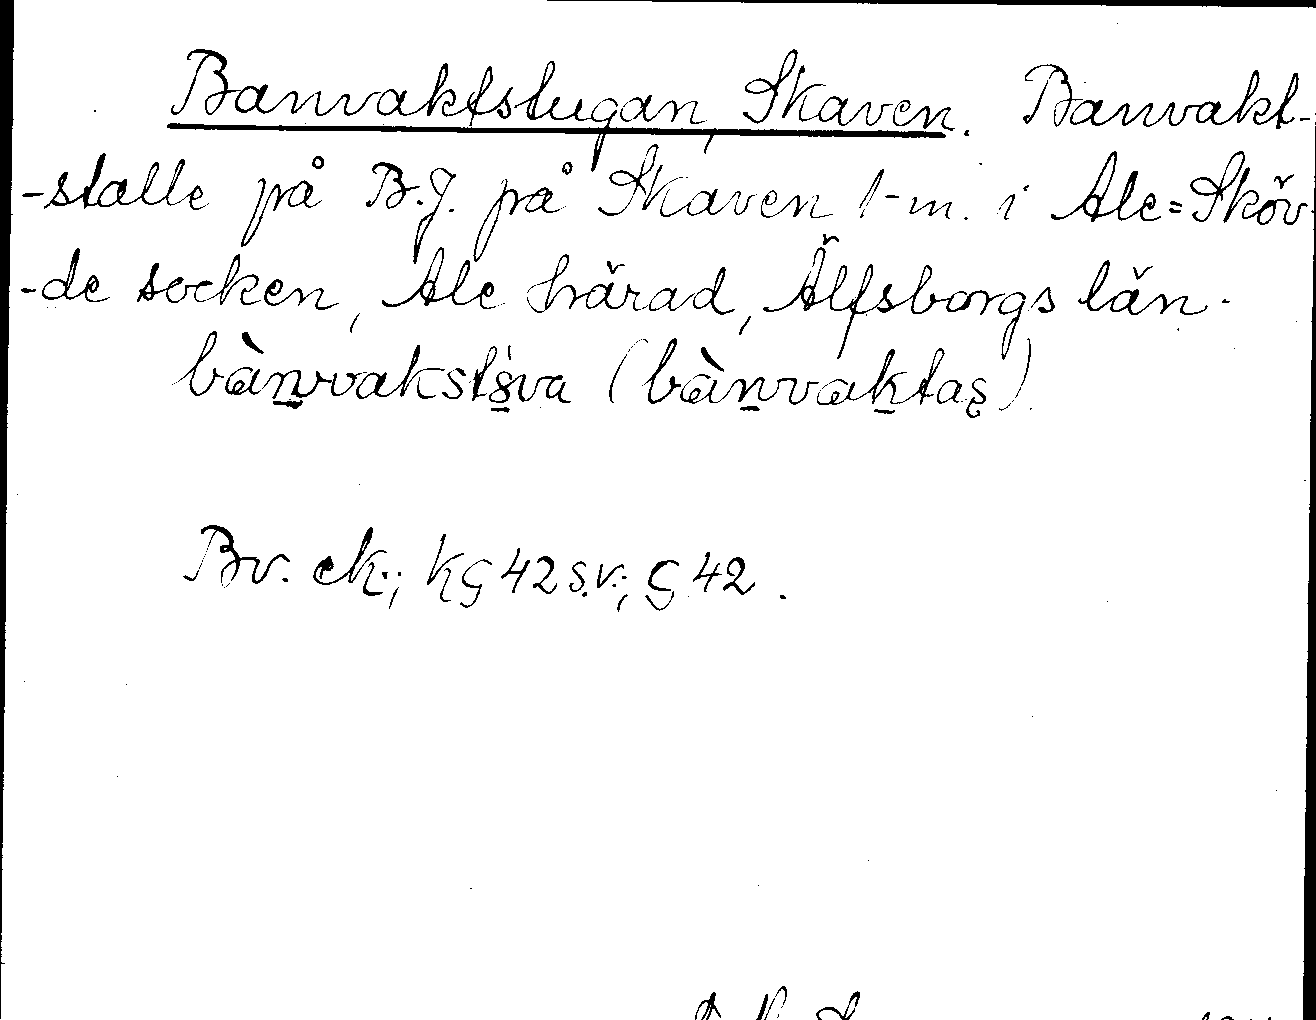 Banvaktstugan, Skaven. Banvakt-
-stalle på B.J. på Skaven 1-m. i Ale=Sköv-
-de socken, Ale härad, Älfsborgs län.
bànvvakstsva (bànvvaktas)
Bv. ek.; kç 42 s.v.; ç 42.